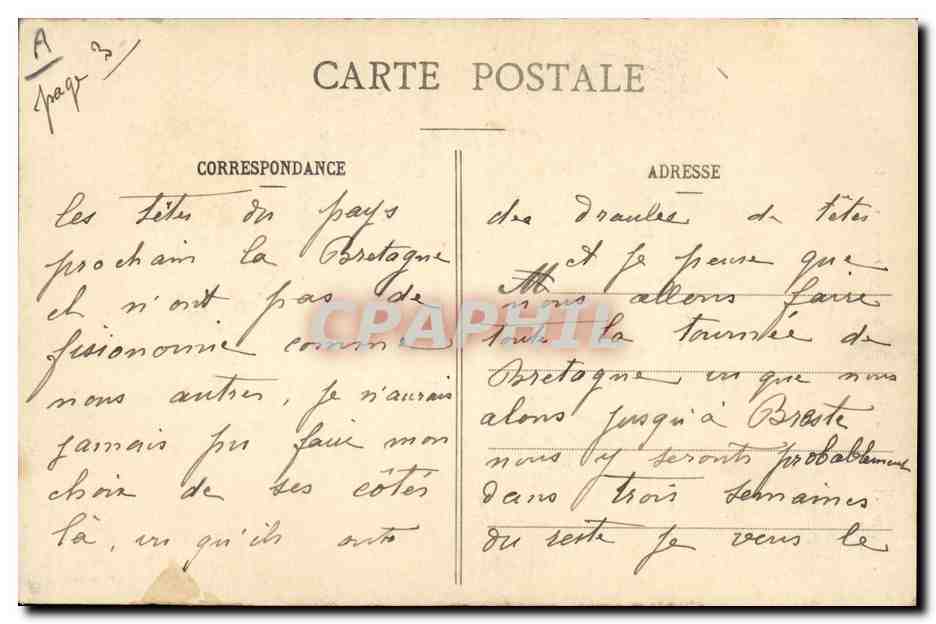 A
page 3
CARTE POSTALE
CORRESPONDANCE
les têtes du pays
prochain la Bretagne
et n'ont pas de
fisionomie comme
nous autres, je n'aurais
jamais pu faire mon
choix de ses côtés
là, vu qu'ils onts
ADRESSE
des draules de têtes
et je pense que
nous allons faire
toute la tournée de
Bretagne vu que nous
alons jusqu'à Breste
nous y seronts probablement
dans trois semaines
du reste je vous le
CPAPHIL